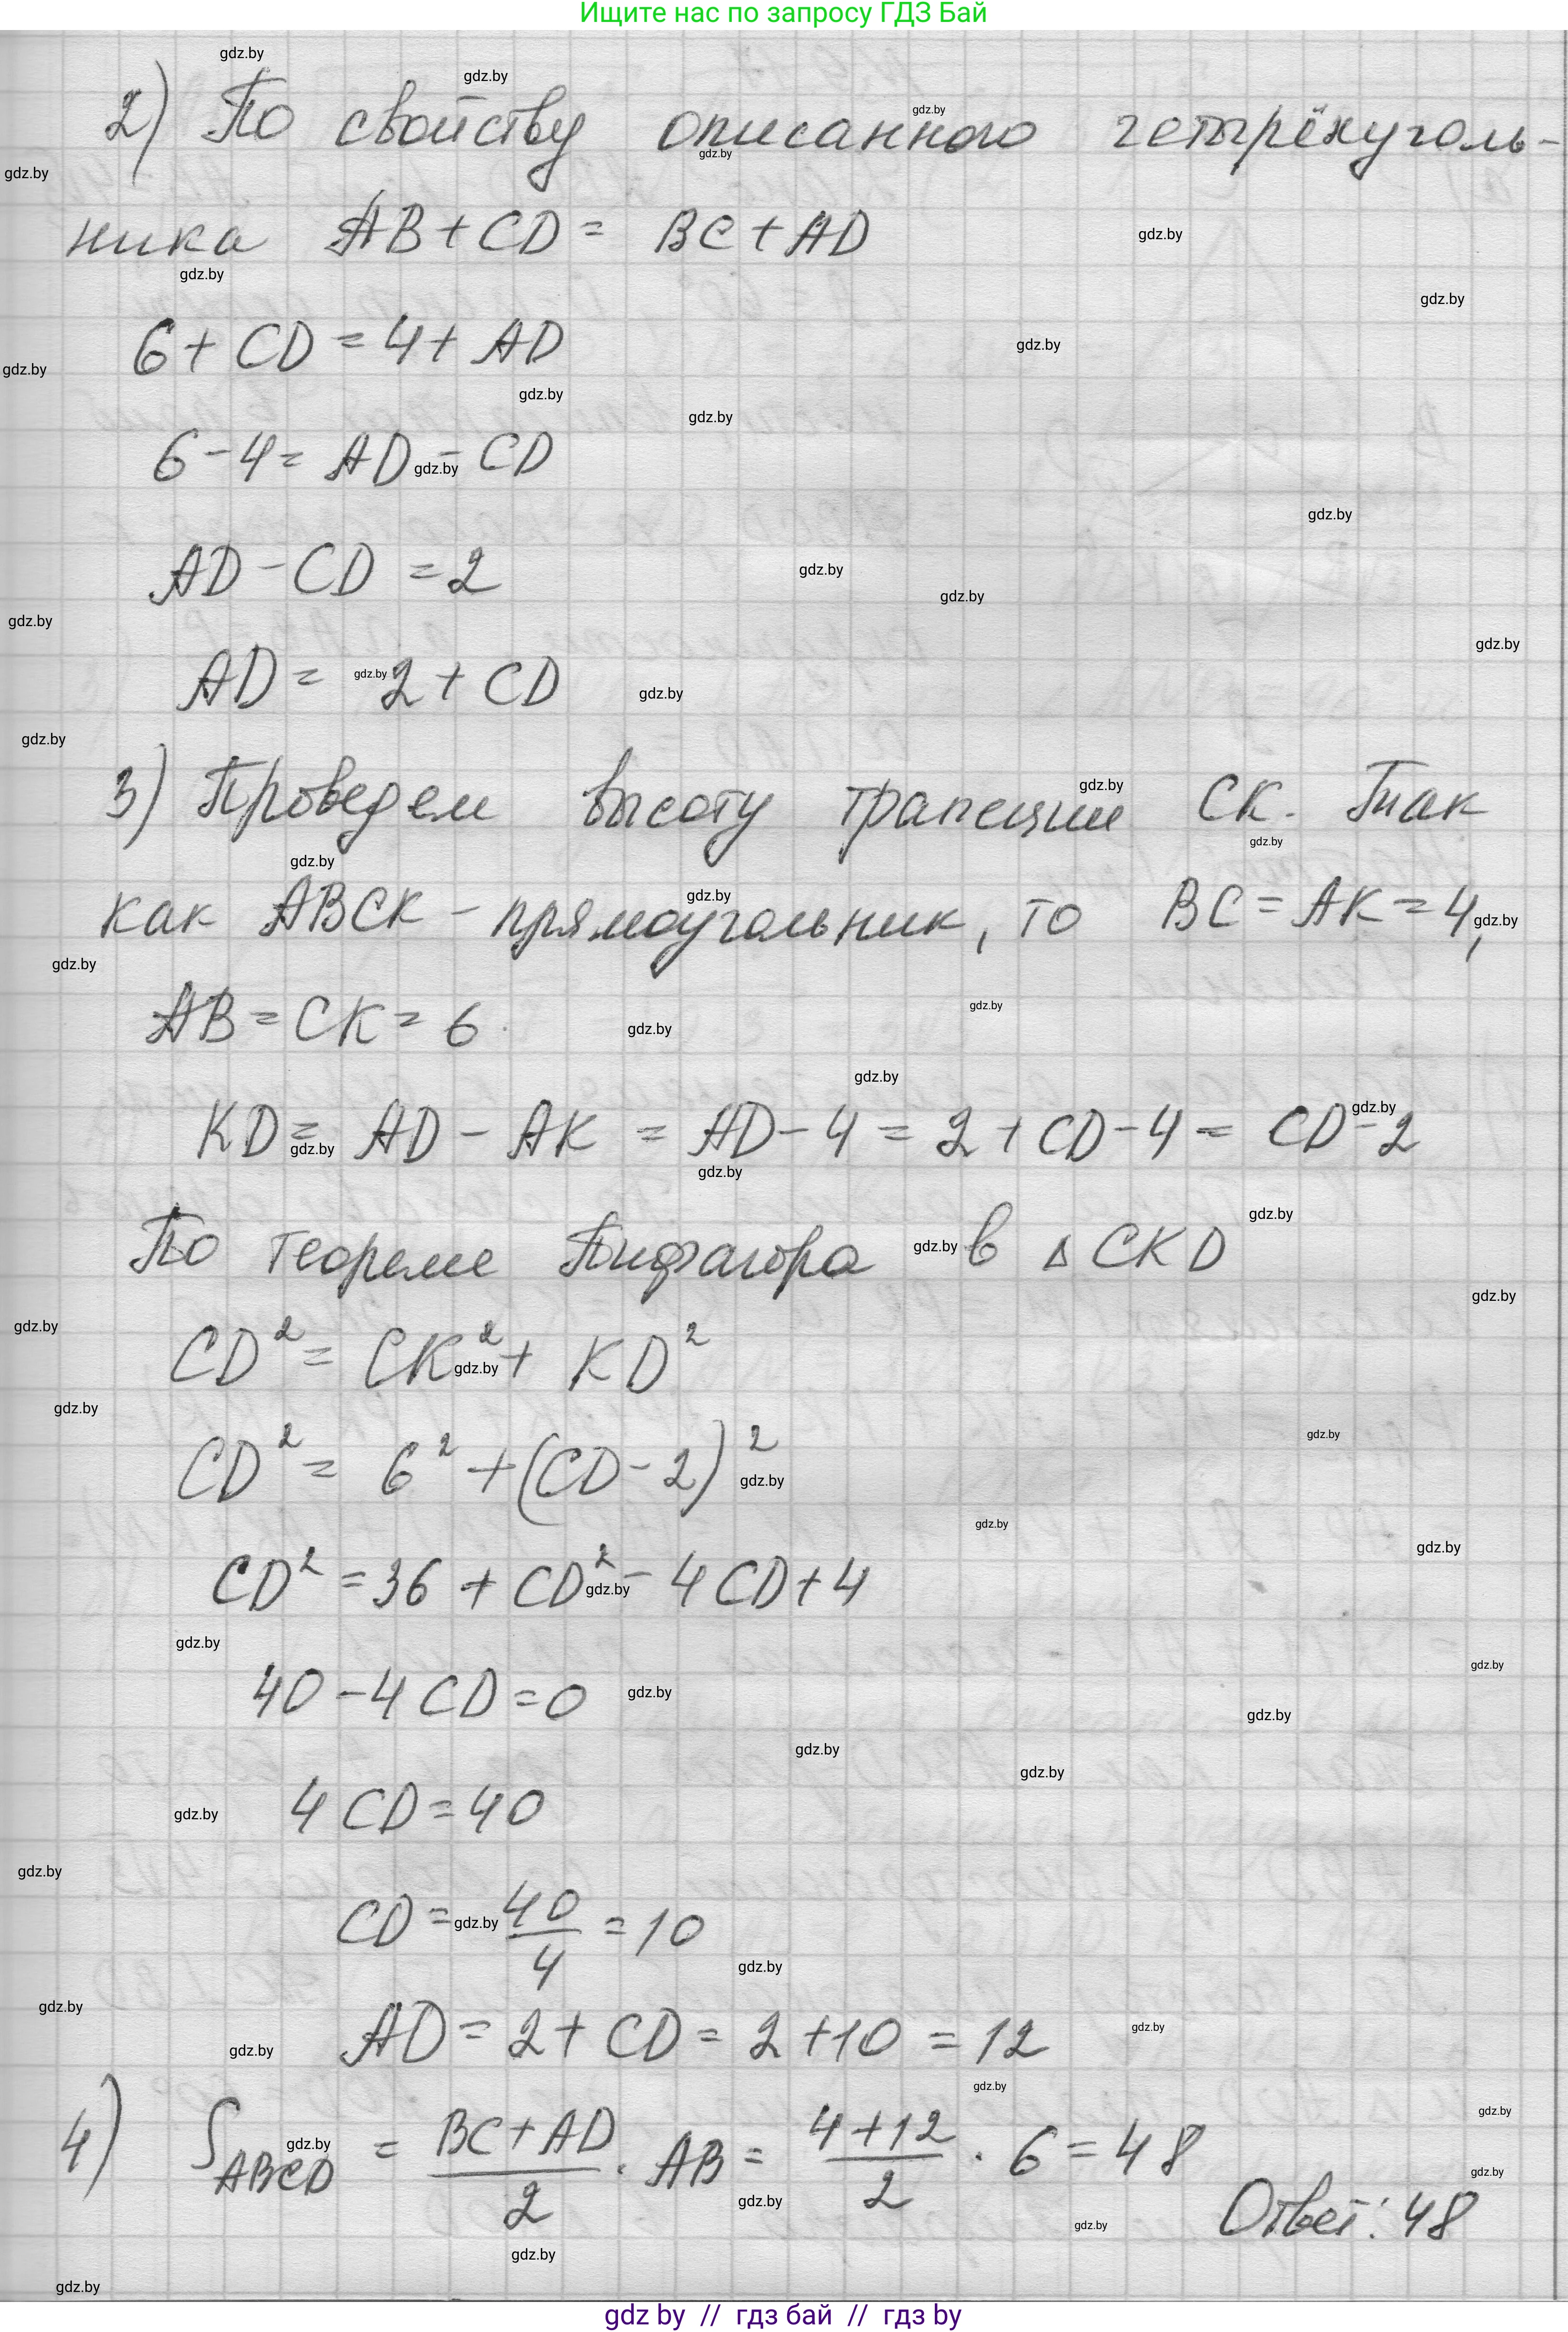 Ищите нас по запросу ГДЗ Бай
2) По свойству описанного четырёхуголь-
ника AB + CD = BC + AD
6 + CD = 4 + AD
6 - 4 = AD - CD
AD - CD = 2
AD = 2 + CD
3) Проведем высоту трапеции CK. Так
как ABCK - прямоугольник, то BC = AK = 4,
AB = CK = 6.
KD = AD - AK = AD - 4 = 2 + CD - 4 = CD - 2
По теореме Пифагора в △ CKD
CD² = CK² + KD²
CD² = 6² + (CD - 2)²
CD² = 36 + CD² - 4CD + 4
40 - 4CD = 0
4CD = 40
CD = 40/4 = 10
AD = 2 + CD = 2 + 10 = 12
4) S ABCD = (BC + AD)/2 · AB = (4 + 12)/2 · 6 = 48
Ответ: 48
gdz by // гдз бай // гдз by